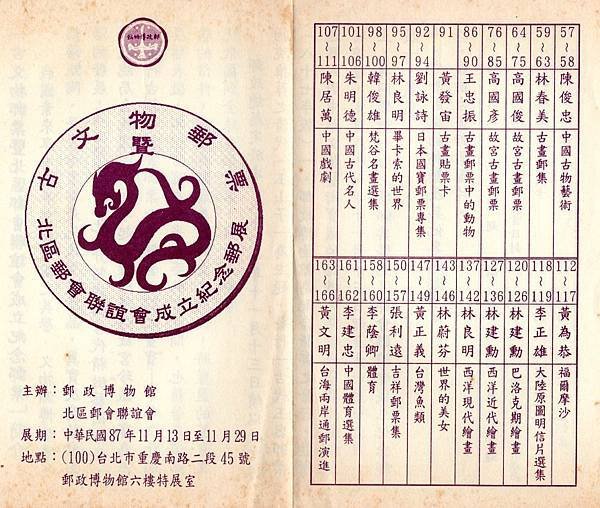 古文物郵票
暨
北區郵會聯誼會成立紀念郵展
主辦：郵政博物館
北區郵會聯誼會
展期：中華民國87年11月13日至11月29日
地點：(100)台北市重慶南路二段45號
郵政博物館六樓特展室
57~58 陳俊忠 中國古物藝術
59~63 林春美 古畫郵集
64~75 高國俊 故宮古畫郵票
76~85 高國彥 故宮古畫郵票
86~90 王忠振 古畫郵票中的動物
91 黃發宙 古畫貼票卡
92~94 劉詠詩 日本國寶郵票專集
95~97 林良明 畢卡索的世界
98~100 韓俊雄 梵谷名畫選集
101~106 朱明德 中國古代名人
107~111 陳居萬 中國戲劇
112~117 黃為恭 福爾摩沙
118~119 李正雄 大陸原圖明信片選集
120~126 林建勳 巴洛克期繪畫
127~136 林建勳 西洋近代繪畫
137~142 林良明 西洋現代繪畫
143~146 林蔚芬 世界的美女
147~149 黃正義 台灣魚類
150~157 張利遠 吉祥郵票集
158~160 李蔭卿 體育
161~162 李建忠 中國體育選集
163~166 黃文明 台海兩岸通郵演進